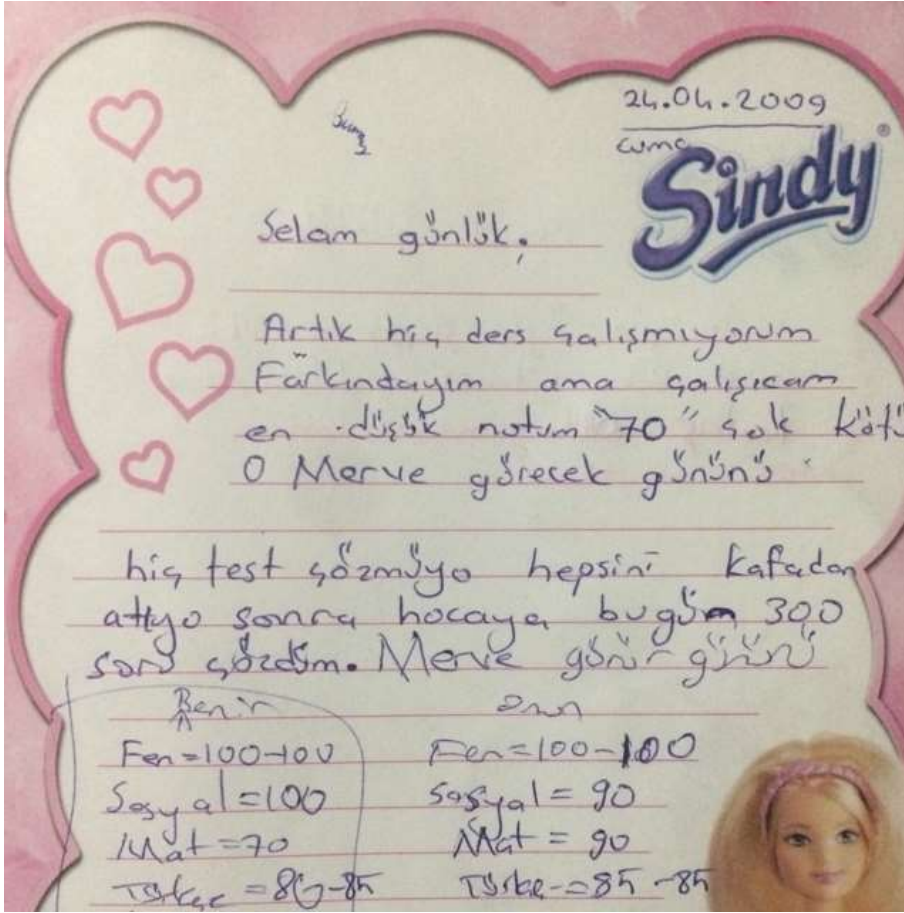 24.04.2009
cuma
Sindy®
Selam günlük,
Artık hiç ders çalışmıyorum
Farkındayım ama çalışıcam
en düşük notum "70" çok kötü
O Merve görecek gününü
hiç test çözmüyo hepsini kafadan
atıyo sonra hocaya bugün 300
soru çözdüm. Merve görür gününü
Benim Onun
Fen=100-100 Fen=100-100
Sosyal=100 Sosyal=90
Mat=70 Mat=90
Türkçe=80-85 Türkçe=85-85